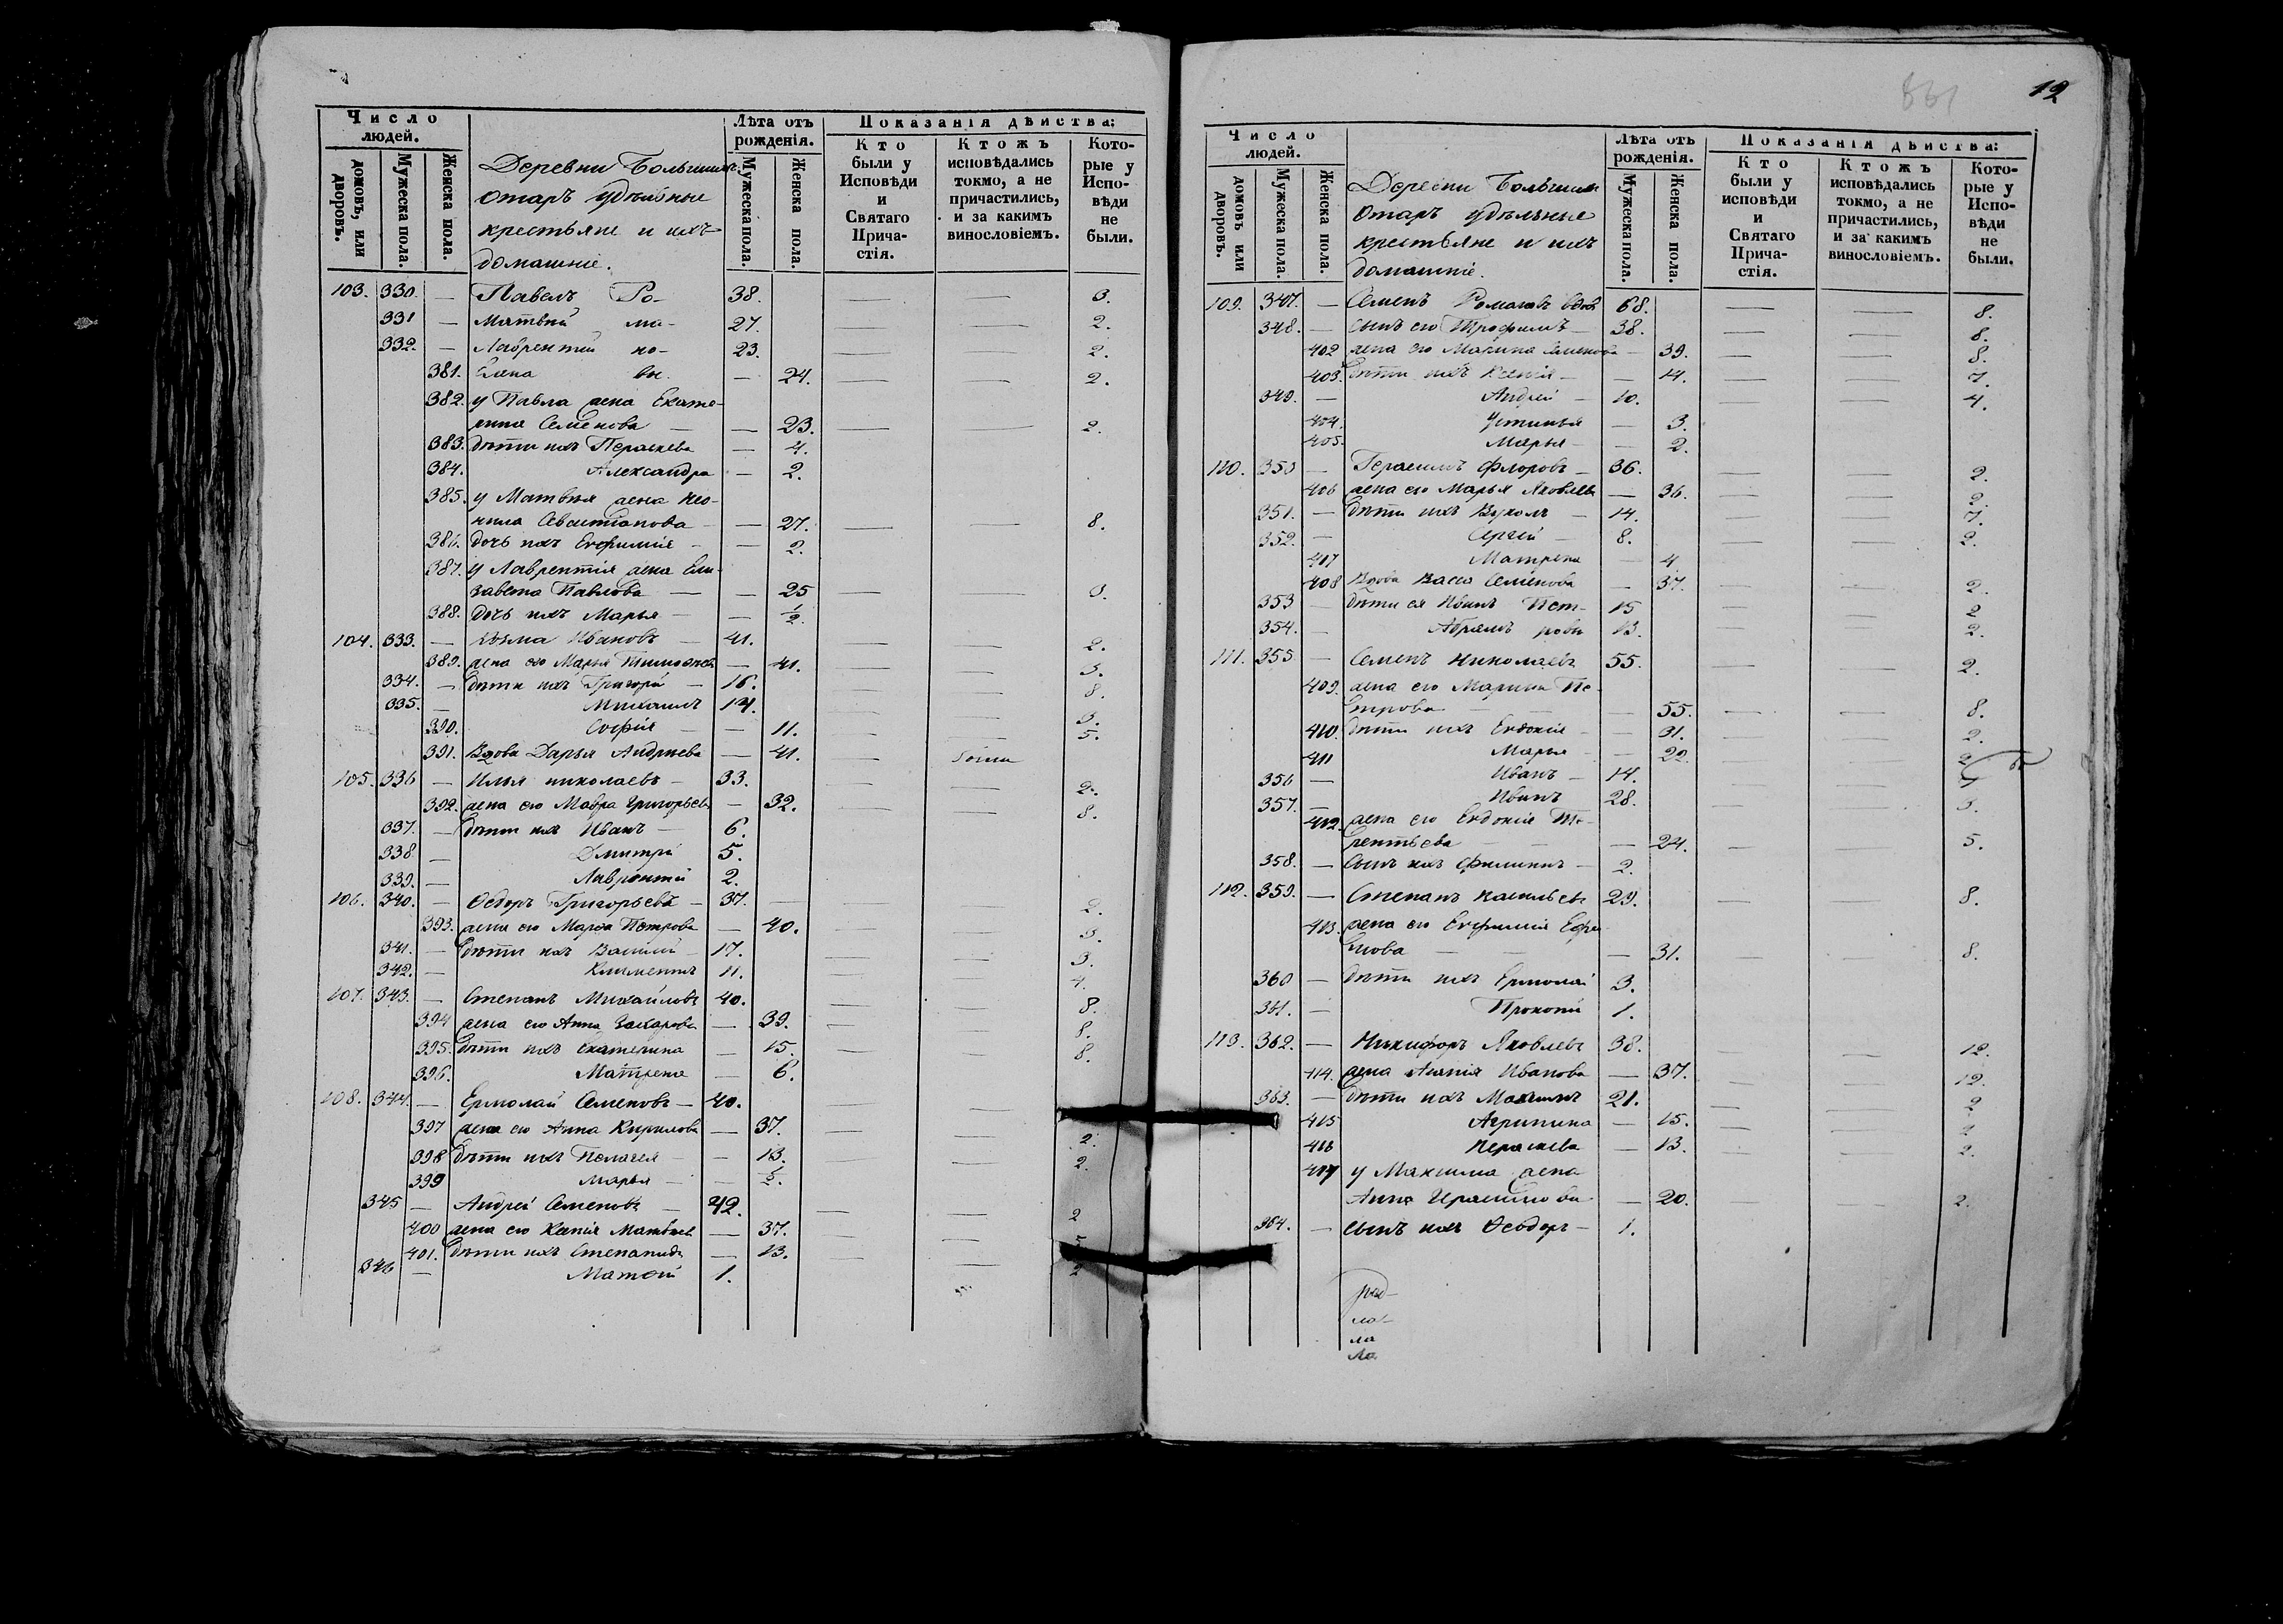 Число людей.
домовъ, или дворовъ.
Мужеска пола.
Женска пола.
Деревни Большихъ
отаръ удѣльные
крестьяне и ихъ
домашніе.
Лѣта отъ рожденія.
Мужеска пола.
Женска пола.
Показанія дѣйства:
Кто были у Исповѣди и Святаго Прича-стія.
Ктожъ исповѣдались токмо, а не причастились, и за какимъ винословіемъ.
Кото-рые у Испо-вѣди не были.
103. 330. — Павелъ Ро- 38. — — 3.
331 — Матвѣй ма- 27. — — 2.
332. — Лаврентій но- 23. — — 2.
381. Елена вы. — 24. — — 2.
382. у Павла жена Екате-
рина Семенова — — 23. — — 2.
383. дѣти ихъ Пераскева — 4.
384. Александра — 2.
385. у Матвѣя жена
Севастіанова — 27. — — 8.
386. дочь ихъ Евфимія — — 2.
387. у Лаврентія жена Ели-
завета Павлова — — 25 — 3.
388. дочь ихъ Марья — — 1/2.
104. 333. — Козма Ивановъ — 41. — — 2.
389. жена его Марья Тимофеева — 41. — — 3.
334. — дѣти ихъ Григорій — 16. — — 8.
335. — Михаилъ 14. — — 3.
390. Софія — — 11. — — 5.
391. Вдова Дарья Андреева — 41. —
105. 336 — Илья николаевъ — 33. — — 2.
392. жена его Мавра Григорьева — 32. — — 8.
337. — дѣти ихъ Иванъ — 6.
338 — Дмитрій 5.
339. — Лаврентій 2.
106. 340. — Ѳедоръ Григорьевъ — 37. — — 2.
393. жена его Марѳа Петрова — 40. — — 3.
341. — дѣти ихъ Василій — 17. — — 3.
342. — Климентъ 11. — — 4.
107. 343. — Степанъ Михайловъ 40. — — 8.
394 жена его Анна Захарова — 39. — — 8.
395. дѣти ихъ Екатерина — 15. — — 8.
396. Матрена — 6.
108. 344. — Ермолай Семеновъ — 40. —
397 жена его Анна Кирилова — 37. — — 2.
398 дѣти ихъ Пелагея — — 13. — — 2.
399 Марья — — 1/2.
345 — Андрей Семеновъ — 42. — — 2
400 жена его Ксенія Матвѣева — 37. — — 5
401. дѣти ихъ Степанида — 13. — — 2
346 — Матѳей 1.
12
Число людей.
домовъ или дворовъ.
Мужеска пола.
Женска пола.
Деревни Большихъ
Отаръ удѣльные
крестьяне и ихъ
домашніе.
Лѣта отъ рожденія.
Мужеска пола.
Женска пола.
Показанія дѣйства:
Кто были у исповѣди и Святаго Прича-стія.
Ктожъ исповѣдались токмо, а не причастились, и за какимъ винословіемъ.
Кото-рые у Испо-вѣди не были.
109. 347. — Семенъ Романовъ вдов 68. — — 8.
348. — сынъ его Трофимъ — 38. — — 8.
402 жена его Марина Семенова — 39. — — 8.
403. дѣти ихъ Ксенія — — 14. — — 7.
349. — Андрей — 10. — — 4.
404. Устинья — 3.
405. Марья — — 2.
110. 350 — Герасимъ Флоровъ — 36. — — 2.
406 жена его Марья Яковлева — 36. — — 2.
351. — дѣти ихъ Вуколъ — 14. — — 7.
352. — Сергей — 8. — — 2.
407 Матрена — 4
408 Вдова Васса Семенова — 37. — — 2.
353 — дѣти ея Иванъ Пет- 15 — — 2
354. — Абрамъ ровы 13. — — 2.
111. 355 — Семенъ Николаевъ 55. — — 2.
409. жена его Марина Пе-
трова — — 55. — — 8.
410. дѣти ихъ Евдокія — — 31. — — 2.
411 Марья — — 22. — — 2
356 — Иванъ — 14. — —
357. — Иванъ 28. — — 3.
412. жена его Евдокія Те-
рентьева — — 24. — — 5.
358. — сынъ ихъ Филиппъ — 2.
112. 359. — Степанъ Васильевъ 29. — — 8.
413. жена его Евфимія Ефи-
мова — — 31. — — 8.
360 — дѣти ихъ Ермолай 3.
361. — Прокопій 1.
113. 362. — Никифоръ Яковлевъ 38. — — 12.
414. жена Ивановa — 37. — — 12.
363. — дѣти ихъ Максимъ 21. — — 2
415 Агрипина — 15. — — 2
416 Пераскева — 13. — — 2.
417 у Максима жена
Анна Герасимова — 20. — — 2.
364. — сынъ ихъ Ѳеодоръ — 1.
ла
ла